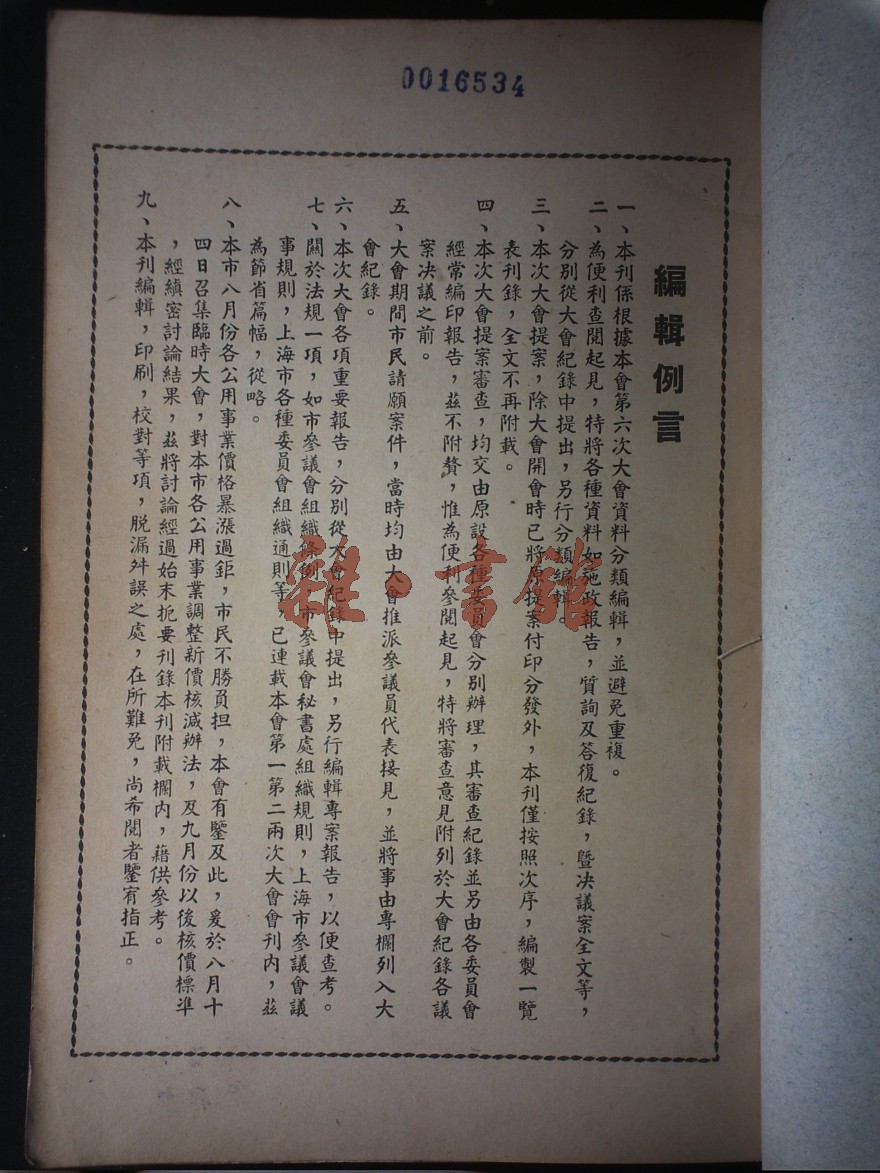 0016534
編輯例言
一、本刊係根據本會第六次大會資料分類編輯，並避免重複。
二、為便利查閱起見，特將各種資料如施政報告，質詢及答復紀錄，暨決議案全文等，
分別從大會紀錄中提出，另行分類編輯。
三、本次大會提案，除大會開會時已將原提案付印分發外，本刊僅按照次序，編製一覽
表刊錄，全文不再附載。
四、本次大會提案審查，均交由原設各種委員會分別辦理，其審查紀錄並另由各委員會
經常編印報告，茲不附贅，惟為便利參閱起見，特將審查意見附列於大會紀錄各議
案决議之前。
五、大會期間市民請願案件，當時均由大會推派參議員代表接見，並將事由專欄列入大
會紀錄。
六、本次大會各項重要報告，分別從大會紀錄中提出，另行編輯專案報告，以便查考。
七、關於法規一項，如市參議會組織條例，市參議會秘書處組織規則，上海市參議會議
事規則，上海市各種委員會組織通則等，已連載本會第一第二兩次大會會刊內，茲
為節省篇幅，從略。
八、本市八月份各公用事業價格暴漲過鉅，市民不勝負担，本會有鑒及此，爰於八月十
四日召集臨時大會，對本市各公用事業調整新價核減辦法，及九月份以後核價標準
，經縝密討論結果，茲將討論經過始末扼要刊錄本刊附載欄內，藉供參考。
九、本刊編輯，印刷，校對等項，脱漏舛誤之處，在所難免，尚希閱者鑒宥指正。
雜·書館